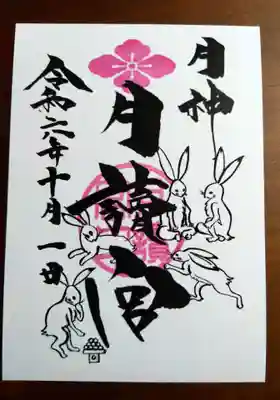 月神
月讀宮
令和六年十月一日